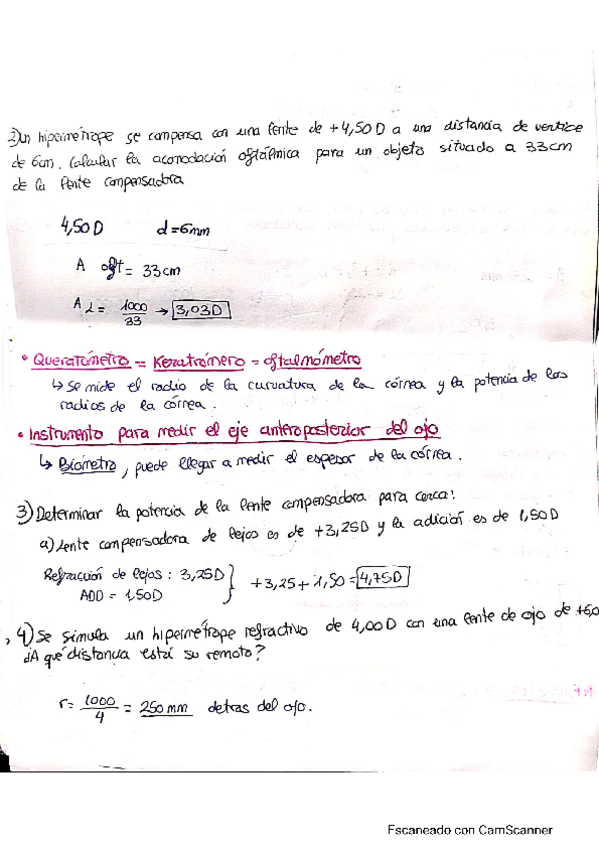 2) Un hipermétrope se compensa con una lente de +4,50 D a una distancia de vertice
de 6cm. Calcular la acomodación oftálmica para un objeto situado a 33cm
de la lente compensadora
4,50 D d=6mm
A oft= 33cm
A L = 1000/33 → 3,03D
• Queratómetro = Keratómero = oftalmómetro
↳ Se mide el radio de la curvatura de la córnea y la potencia de los
radios de la córnea.
• Instrumento para medir el eje anteroposterior del ojo
↳ Biómetro, puede llegar a medir el espesor de la córnea.
3) Determinar la potencia de la lente compensadora para cerca:
a) Lente compensadora de lejos es de +3,25D y la adición es de 1,50D
Refracción de lejos: 3,25D
ADD = 1,50D } +3,25+1,50= 4,75D
4) Se simula un hipermétrope refractivo de 4,00D con una lente de ojo de +6,0
¿A qué distancia está su remoto?
r= 1000/4 = 250 mm detras del ojo.
Escaneado con CamScanner